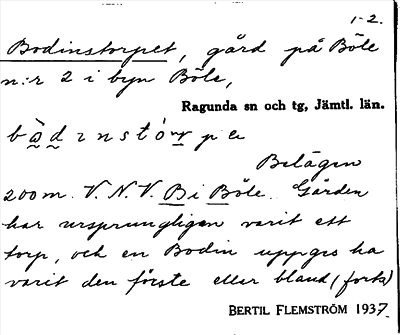 1-2.
Bodinstorpet, gård på Böle
n:r 2 i byn Böle,
Ragunda sn och tg, Jämtl. län.
Belägen
200 m. V.N.V. B i Böle. Gården
har ursprungligen varit ett
torp, och en Bodin uppges ha
varit den förste eller bland (forts)
BERTIL FLEMSTRÖM 1937.